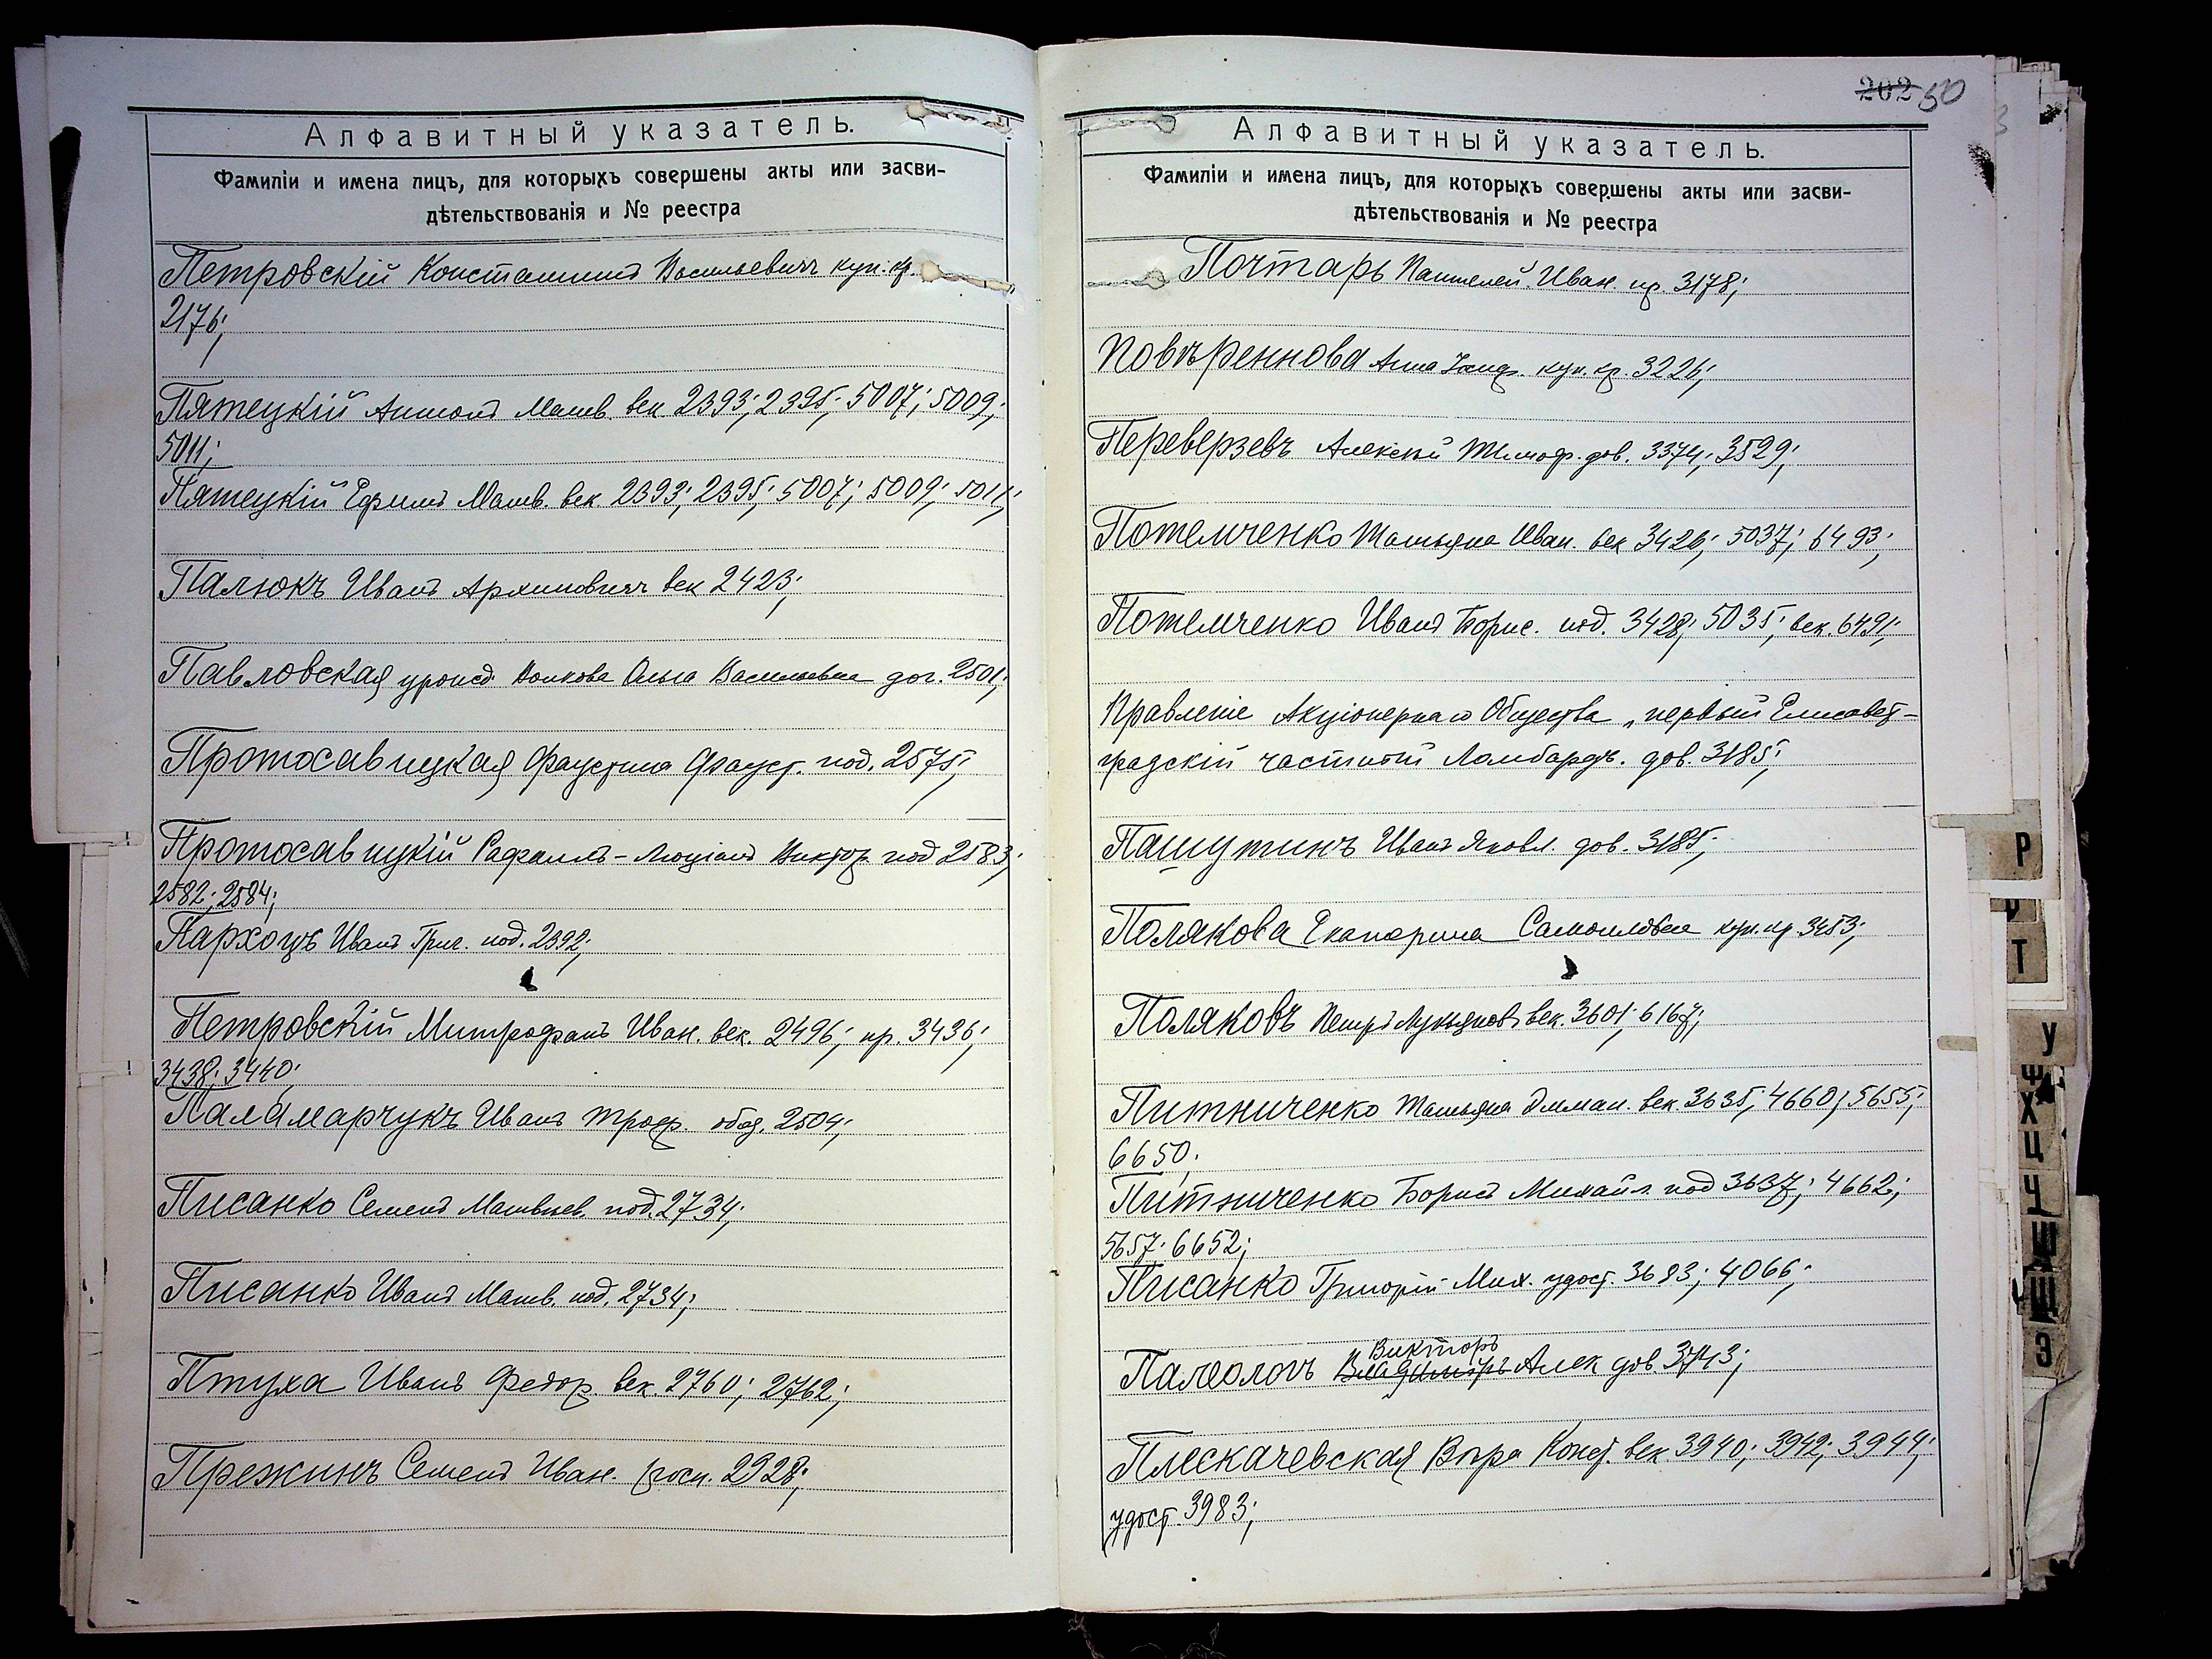 Алфавитный указатель.
Фамиліи и имена лицъ, для которыхъ совершены акты или засви-
дѣтельствованія и № реестра
Петровскій Константинъ Васильевичъ куп. кр.
2176;
Пятецкій Антонъ Матв. век. 2393; 2395; 5007; 5009;
5011;
Пятецкій Ефимъ Матв. век. 2393; 2395; 5007; 5009; 5011;
Палюкъ Иванъ Архиповичъ век 2423;
Павловская урожд. Ольга Васильевна дог. 2501;
Протосавицкая Фаустина Фауст. под. 2575;
Протосавицкій Рафаилъ-Люціанъ Виктор. под 2583;
2582; 2584;
Пархоцъ Иванъ Григ. под. 2392;
Петровскій Митрофанъ Иван. век. 2496; пр. 3436;
3438; 3440;
Паламарчукъ Иванъ Троф. обяз. 2504;
Писанко Семенъ Матвѣев. под. 2734;
Писанко Иванъ Матв. под. 2734;
Птуха Иванъ Федор. век. 2760; 2762;
Прежинъ Семенъ Иван. росп. 2928;
202 50
Алфавитный указатель.
Фамиліи и имена лицъ, для которыхъ совершены акты или засви-
дѣтельствованія и № реестра
Почтарь Пантелей. Иван. пр. 3178;
Повѣреннова Анна куп. кр. 3226;
Переверзевъ Алексѣй Тимоф. дов. 3374; 3529;
Потемченко Татьяна Иван. век 3426; 5037; 6493;
Потемченко Иванъ Борис. под. 3428; 5035; век. 6491;
Правленіе Акціонернаго Общества „первый Елисавет-
градскій частный Ломбардъ. дов. 3185;
Пашутинъ Иванъ Яковл. дов. 3185;
Полякова Екатерина Самойловна куп. кр 3453;
Поляковъ Петръ Лукьянов. век. 3601; 6167;
Питниченко Татьяна Эмман. век. 3635; 4660; 5655;
6650;
Питниченко Борисъ Михайл. под 3637; 4662;
5657; 6652;
Писанко Григорій Мих. удост. 3683; 4066;
Викторъ
Палеологъ Владиміръ Алек дов. 3743;
Плескачевская Вѣра Конст. век. 3940; 3942; 3944;
удост. 3983;
Р
Т
У
Ф
Х
Ц
Ч
Ш
Щ
Э